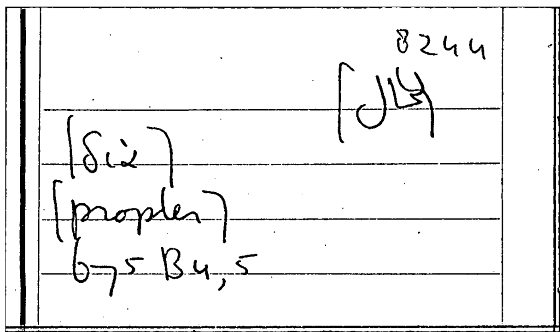 8244
(διὰ)
(propter)
675 B4,5